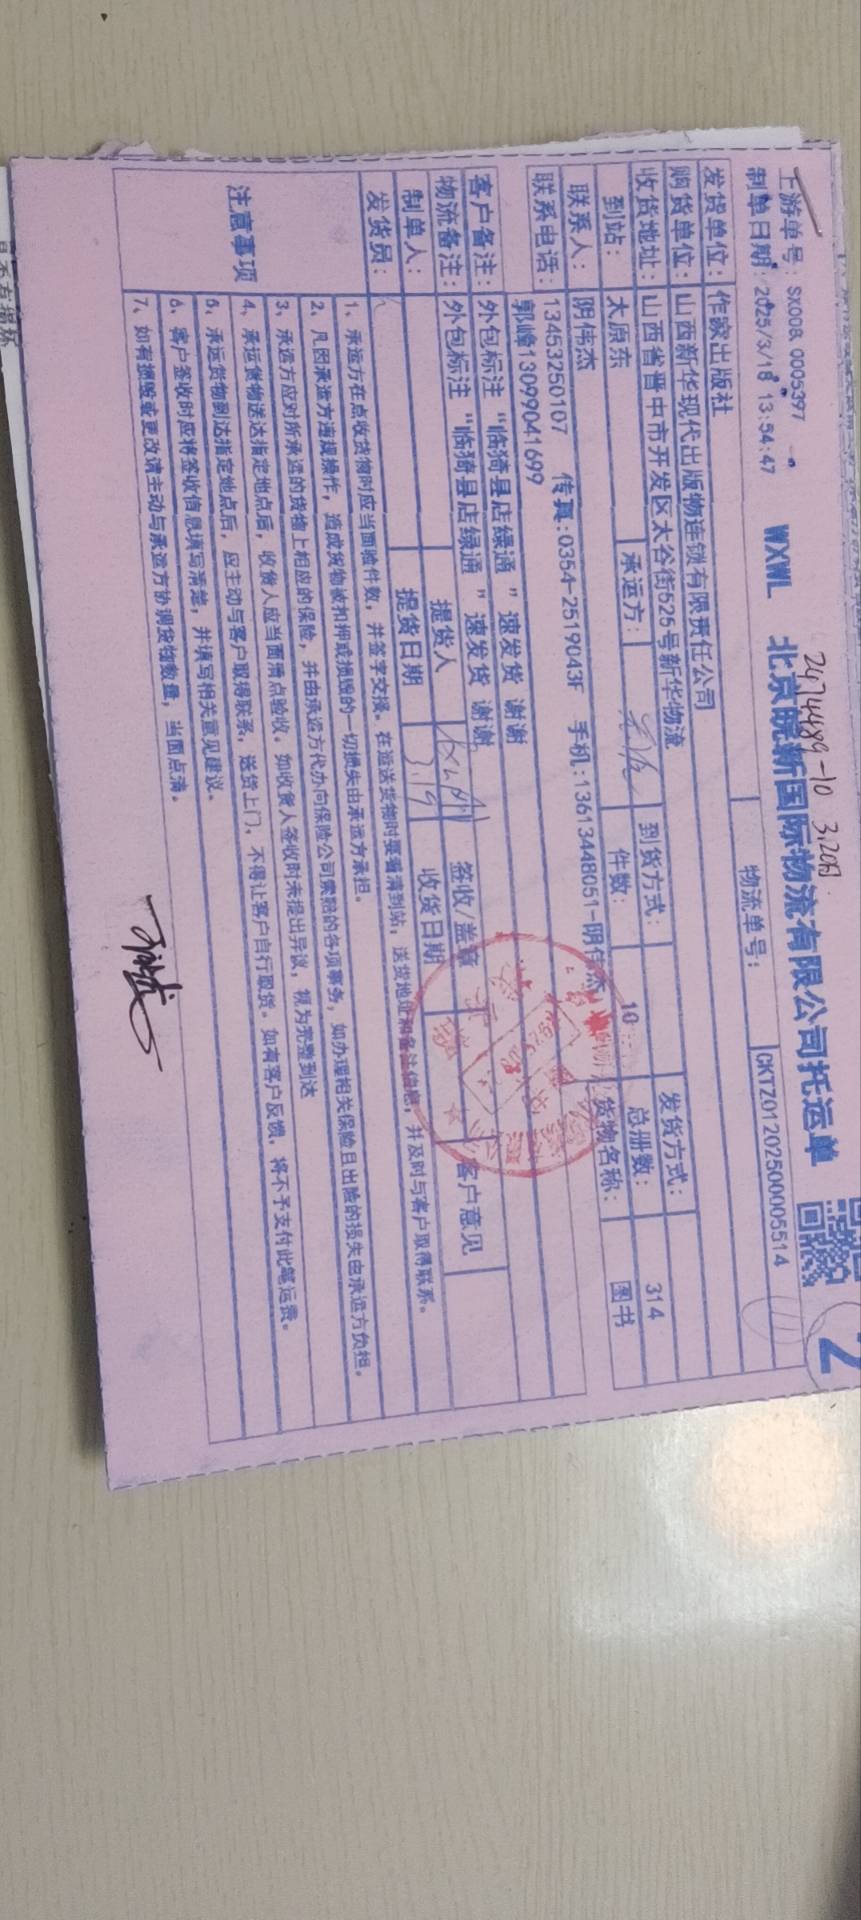 2474489-10 3.20日
上游单号：SX008 0005397
WXWL 北京晓新国际物流有限公司托运单
2
制单日期：2025/3/18 13:54:47
物流单号： CKTZ01202500005514
发货单位： 作家出版社
购货单位： 山西新华现代出版物连锁有限责任公司
收货地址： 山西省晋中市开发区太谷街525号新华物流 到货方式： 发货方式：
到站： 太原东 承运方： 件数： 10 总册数： 314
联系人： 阴伟杰 货物名称： 图书
联系电话： 13453250107 传真:0354-2519043F 手机:13613448051-阴伟杰
郭峰13099041699
客户备注： 外包标注“临猗县店绿通 ”速发货 谢谢
物流备注： 外包标注“临猗县店绿通 ”速发货 谢谢
制单人： 提货人 签收/盖章 客户意见
发货员： 提货日期 3.19 收货日期
注意事项
1、承运方在点收货物时应当面验件数，并签字交接。在运送货物时要看清到站，送货地址和备注信息，并及时与客户取得联系。
2、凡因承运方违规操作，造成货物被扣押或损毁的一切损失由承运方承担。
3、承运方应对所承运的货物上相应的保险，并由承运方代办向保险公司索赔的各项事务，如办理相关保险且出险的损失由承运方负担。
4、承运货物送达指定地点后，收货人应当面清点验收。如收货人签收时未提出异议，视为完整到达
5、承运货物到达指定地点后，应主动与客户取得联系，送货上门，不得让客户自行取货。如有客户反馈，将不予支付此笔运费。
6、客户签收时应将签收信息填写清楚，并填写相关意见建议。
7、如有损毁或更改请主动与承运方协调货物数量，当面点清。